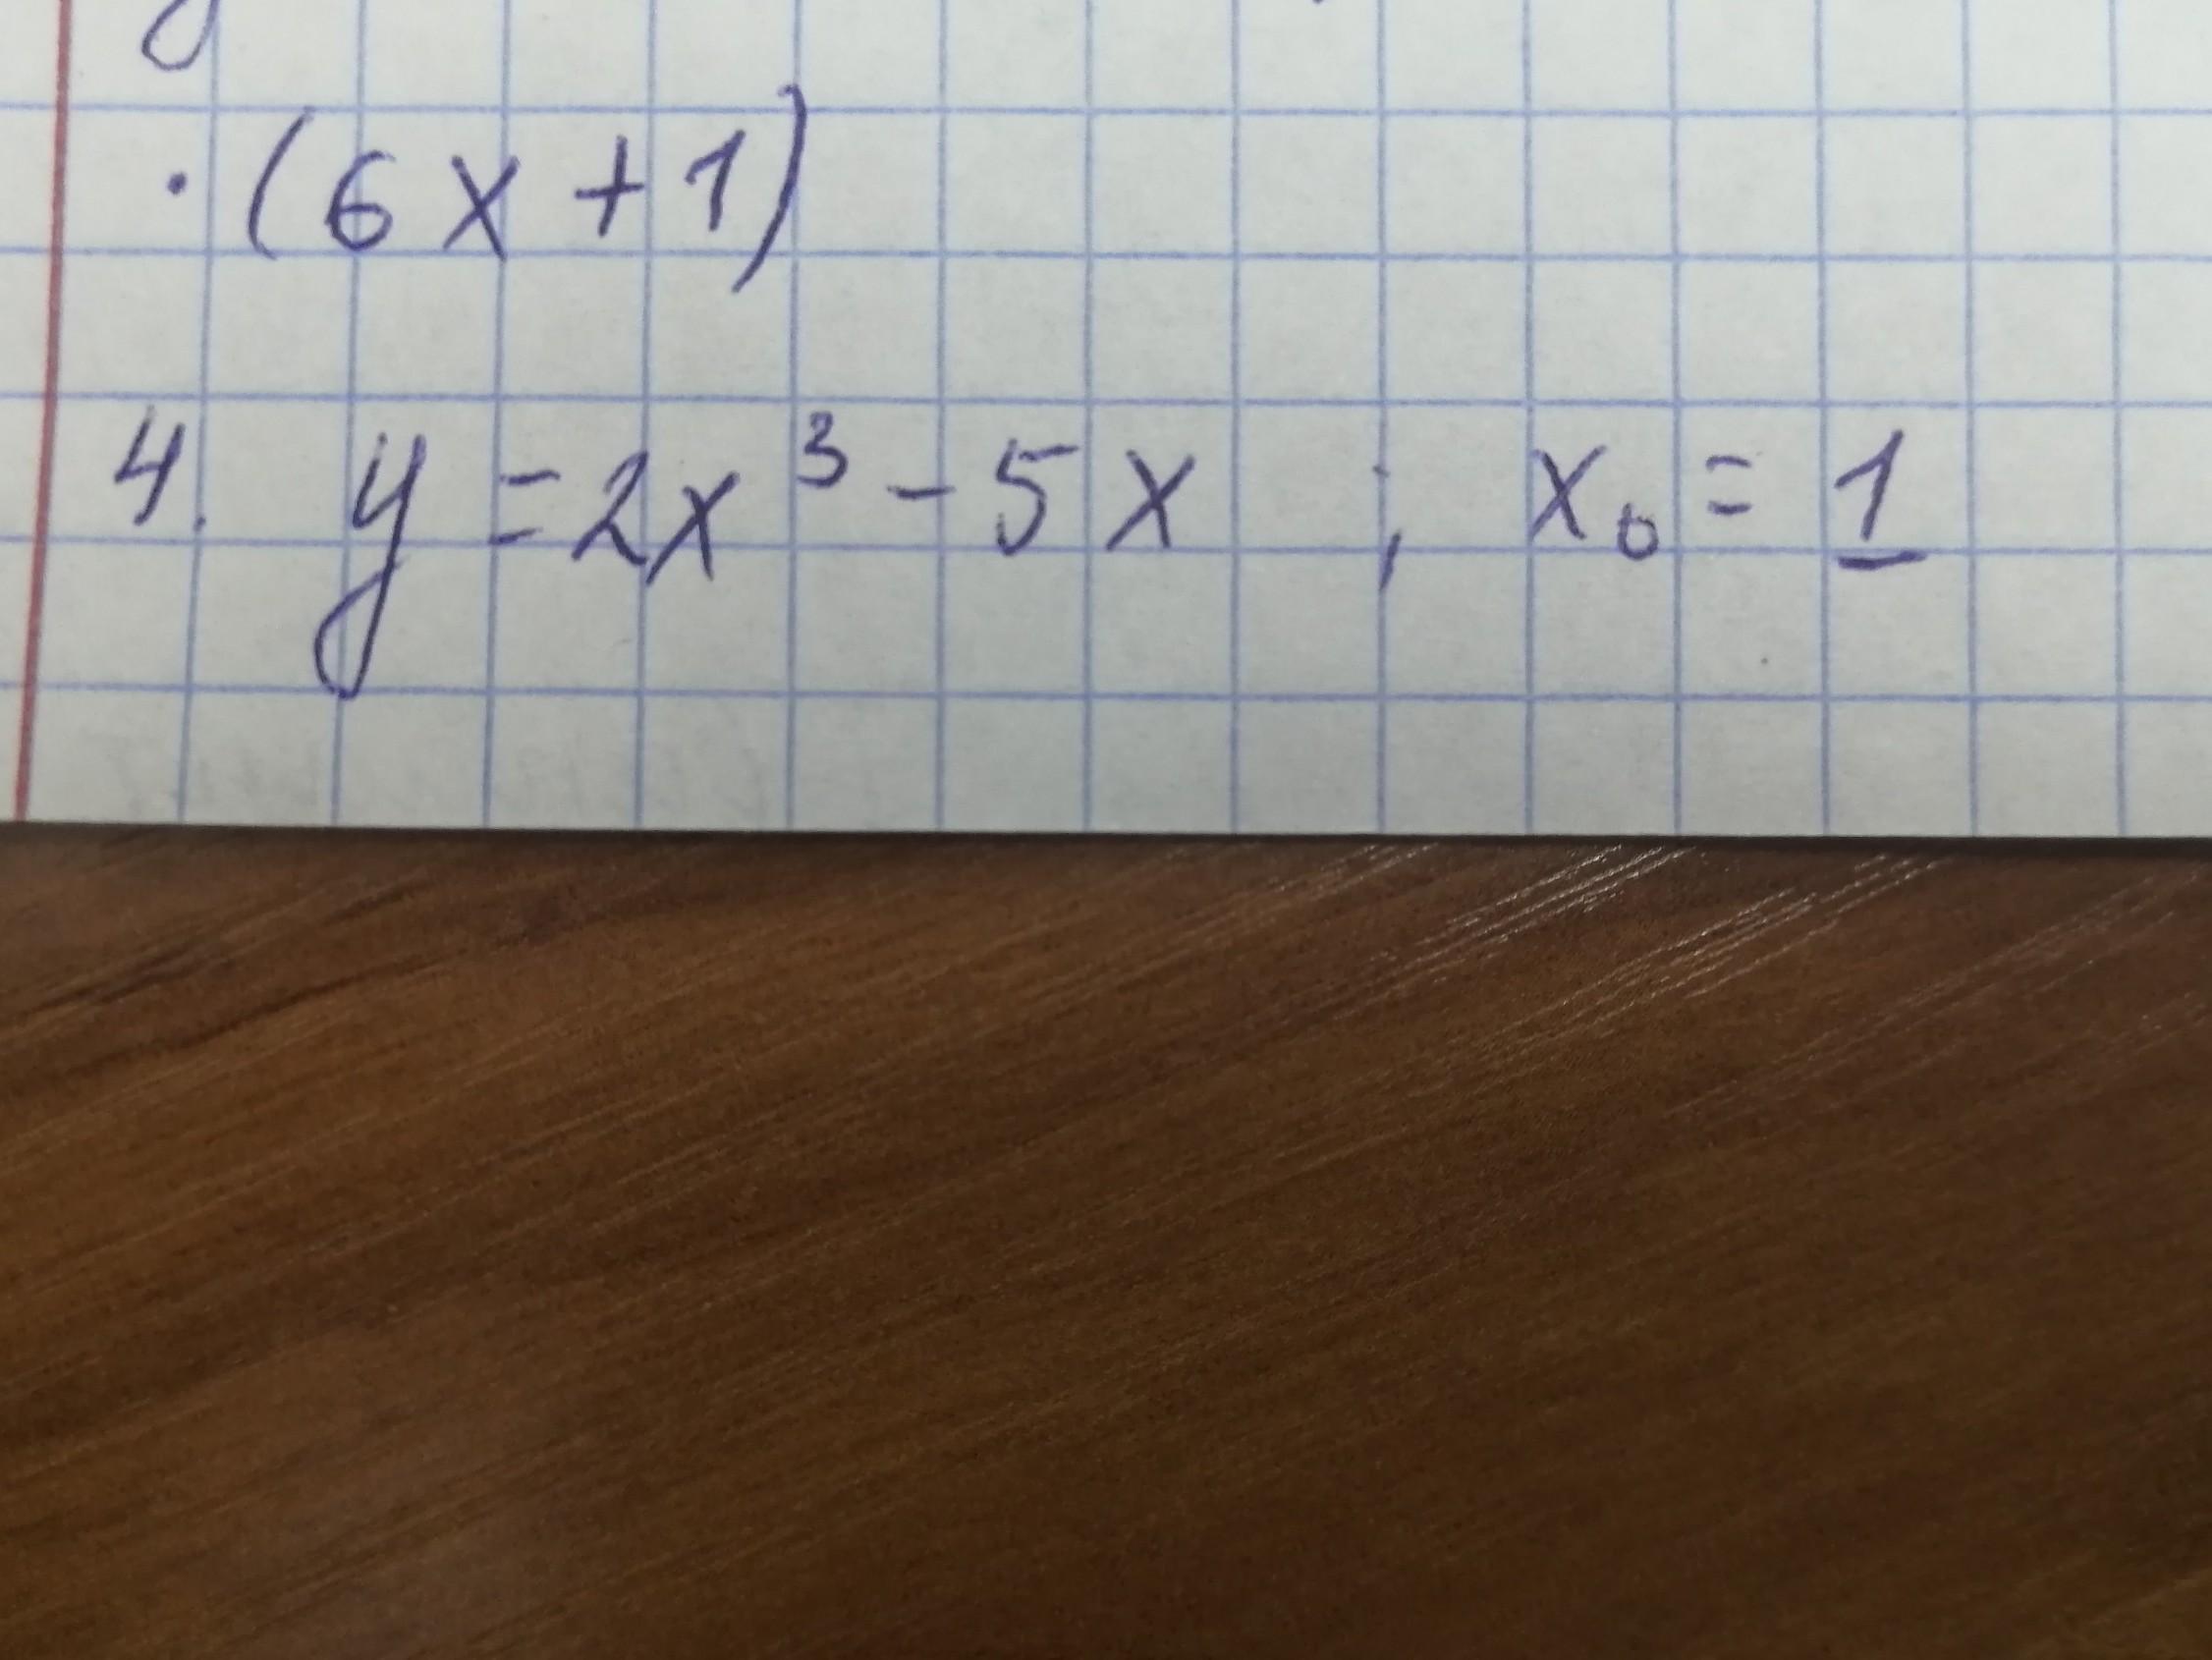 · (6x + 1)
4. y = 2x³ - 5x ; x₀ = 1